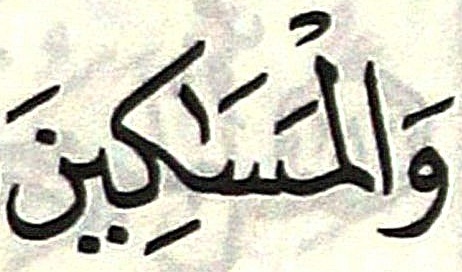 وَالْمَسَٰكِينَ